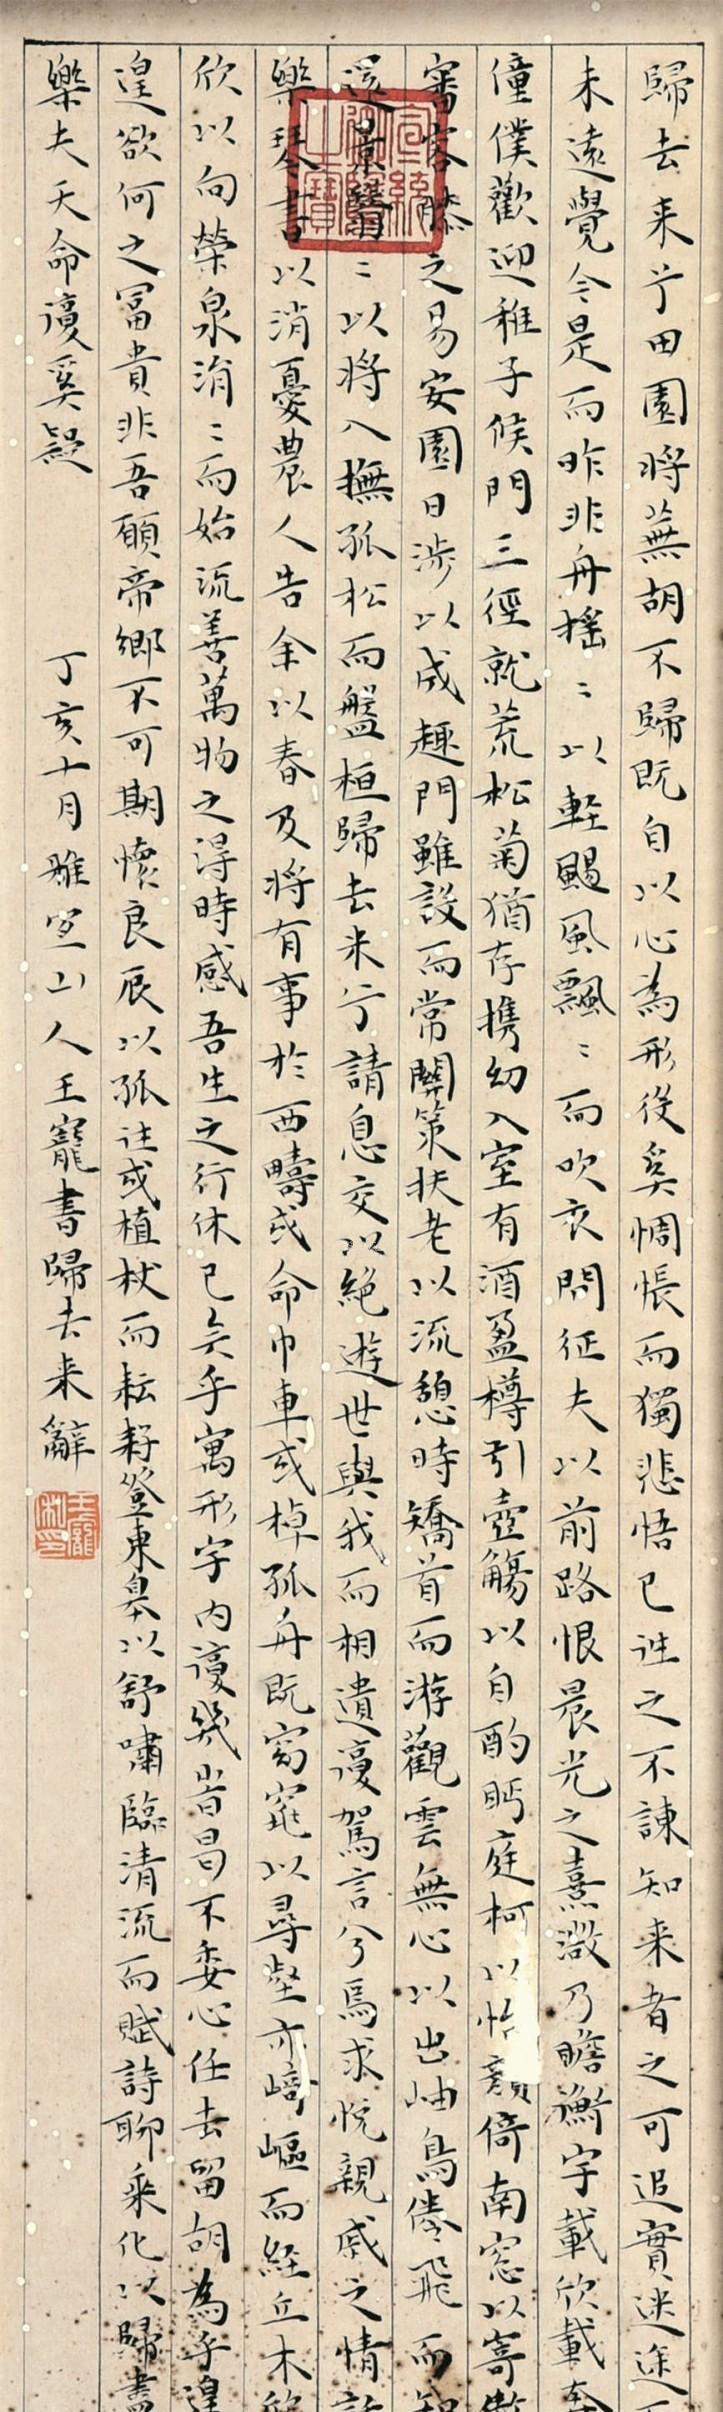 歸去来兮田園将蕪胡不歸既自以心為形役奚惆悵而獨悲悟已往之不諫知来者之可追實迷途
未遠覺今是而昨非舟摇〻以輕颺風飄〻而吹衣問征夫以前路恨晨光之熹微乃瞻衡宇載欣載奔
僮僕歡迎稚子候門三徑就荒松菊猶存携幼入室有酒盈樽引壺觴以自酌眄庭柯以怡顔倚南窓以寄傲
審容膝之易安園日涉以成趣門雖設而常關策扶老以流憩時矯首而游觀雲無心以出岫鳥倦飛而知
還景翳〻以将入撫孤松而盤桓歸去来兮請息交以絶遊世與我而相遺復駕言兮焉求悅親戚之情話
樂琴書以消憂農人告余以春及将有事於西疇或命巾車或棹孤舟既窈窕以尋壑亦崎嶇而經丘木欣
欣以向榮泉涓〻而始流善萬物之得時感吾生之行休已矣乎寓形宇内復幾時曷不委心任去留胡為乎遑
遑欲何之富貴非吾願帝鄉不可期懷良辰以孤往或植杖而耘耔登東皋以舒嘯臨清流而賦詩聊乘化以歸盡
樂夫天命復奚疑
丁亥十月雅宜山人王寵書歸去来辭
宣統御覽之寶
王寵私印